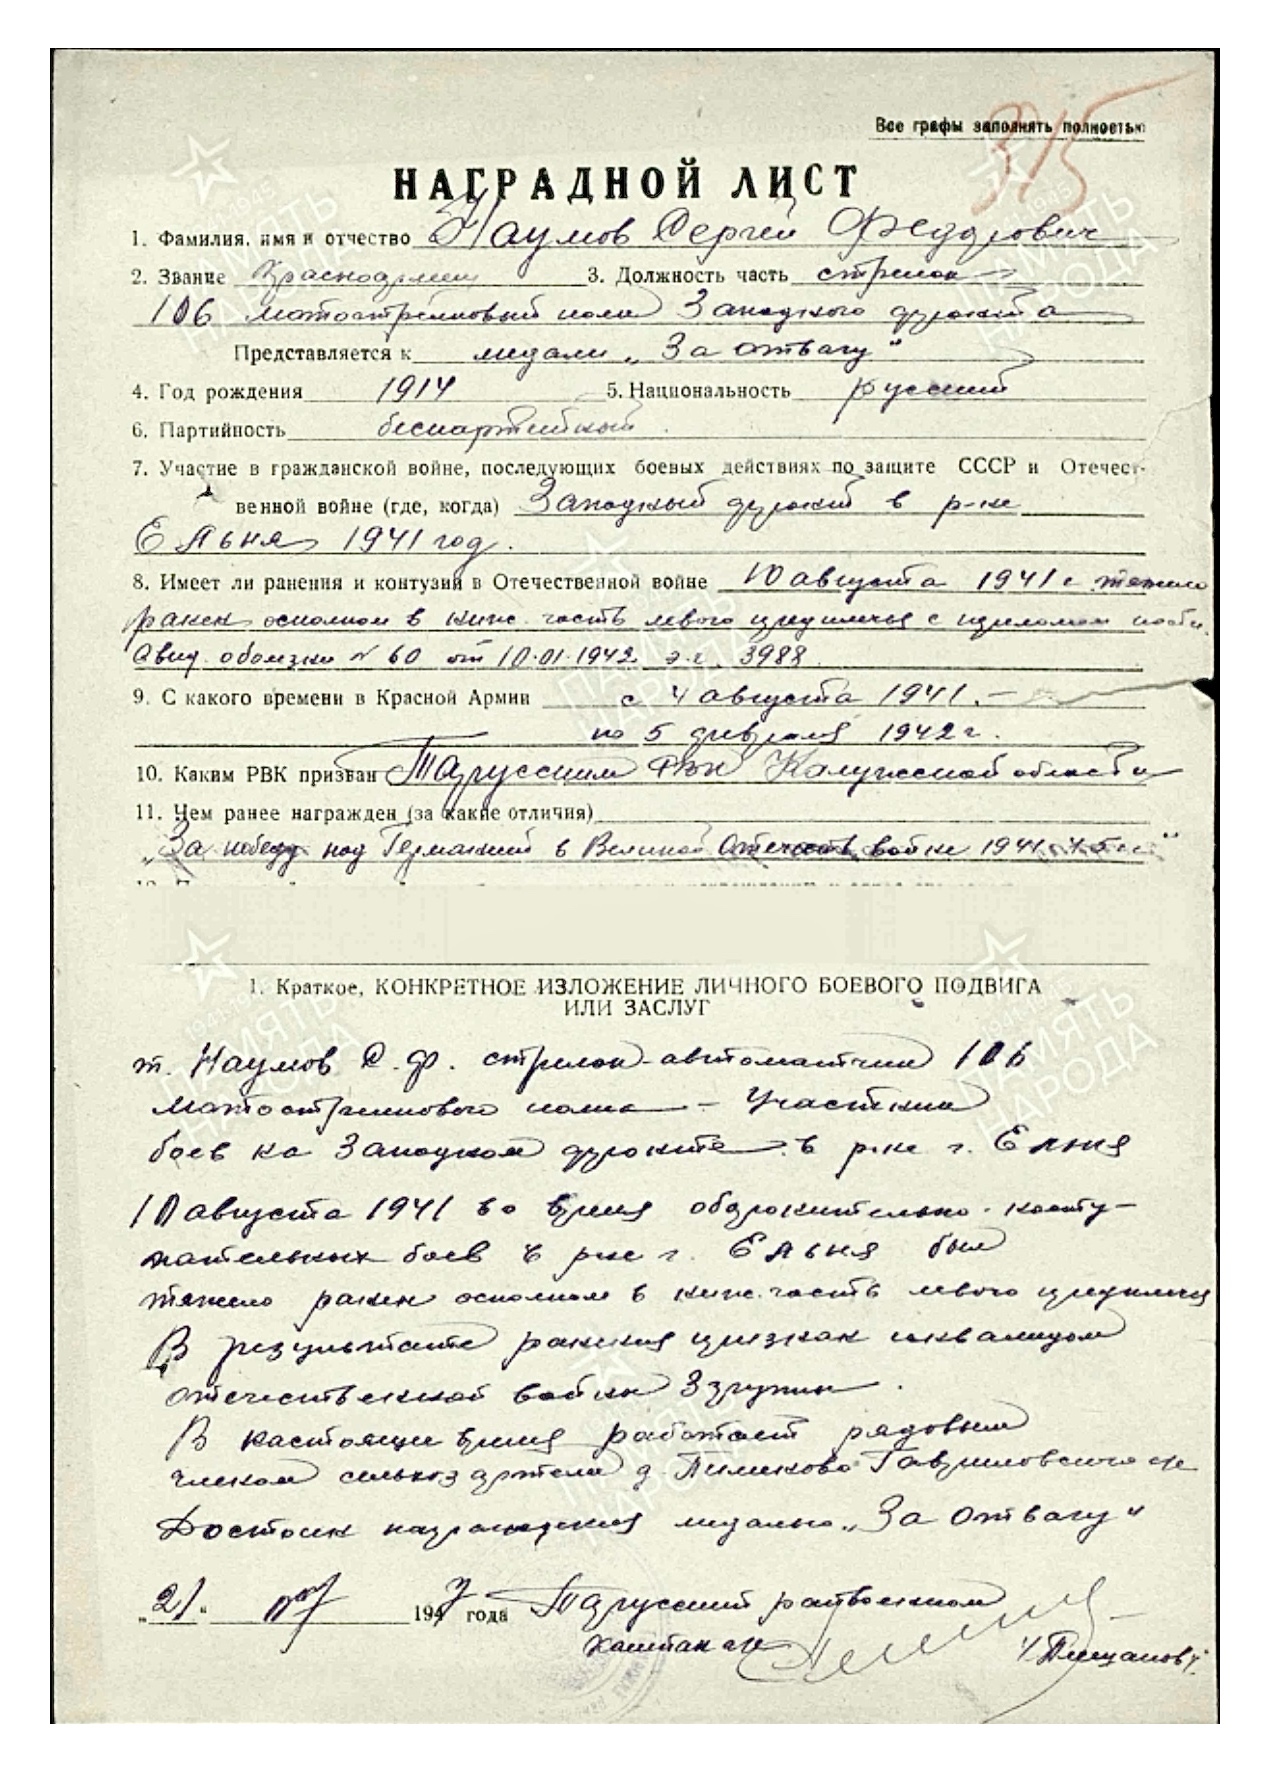 315
Все графы заполнять полностью
НАГРАДНОЙ ЛИСТ
1. Фамилия, имя и отчество Наумов Сергей Федорович
2. Звание Красноармеец 3. Должность часть стрелок
106 мотострелковый полк Западного фронта
Представляется к медали „За отвагу"
4. Год рождения 1914 5. Национальность русский
6. Партийность беспартейный
7. Участие в гражданской войне, последующих боевых действиях по защите СССР и Отечест-
венной войне (где, когда) Западный фронт в р-не
Ельня 1941 год.
8. Имеет ли ранения и контузии в Отечественной войне 10 августа 1941 г. тяжело
ранен осколком в ниж. часть левого предплечья с переломом
Свид. о болезни № 60 от 10.01.1942 э.г. 3988
9. С какого времени в Красной Армии с 4 августа 1941. –
по 5 февраля 1942 г.
10. Каким РВК призван Тарусским РВК Калужской области
11. Чем ранее награжден (за какие отличия)
„За победу над Германией в Великой Отечеств войне 1941-45 гг"
1. Краткое, КОНКРЕТНОЕ ИЗЛОЖЕНИЕ ЛИЧНОГО БОЕВОГО ПОДВИГА
ИЛИ ЗАСЛУГ
т. Наумов С. Ф. стрелок-автоматчик 106
мотострелкового полка – Участник
боев на Западном фронте в р-не г. Ельня
10 августа 1941 во время оборонительно-насту-
пательных боев в р-не г. Ельня был
тяжело ранен осколком в ниж. часть левого предплечья
В результате ранения признан инвалидом
отечественной войны 3 группы.
В настоящее время работает рядовым
членом сельхоз артели д. Гавриловского с/с
Достоин награждения медалью „За Отвагу"
„21" 1947 года Тарусский райвоенком
капитан а/с
ПАМЯТЬ НАРОДА
1941-1945